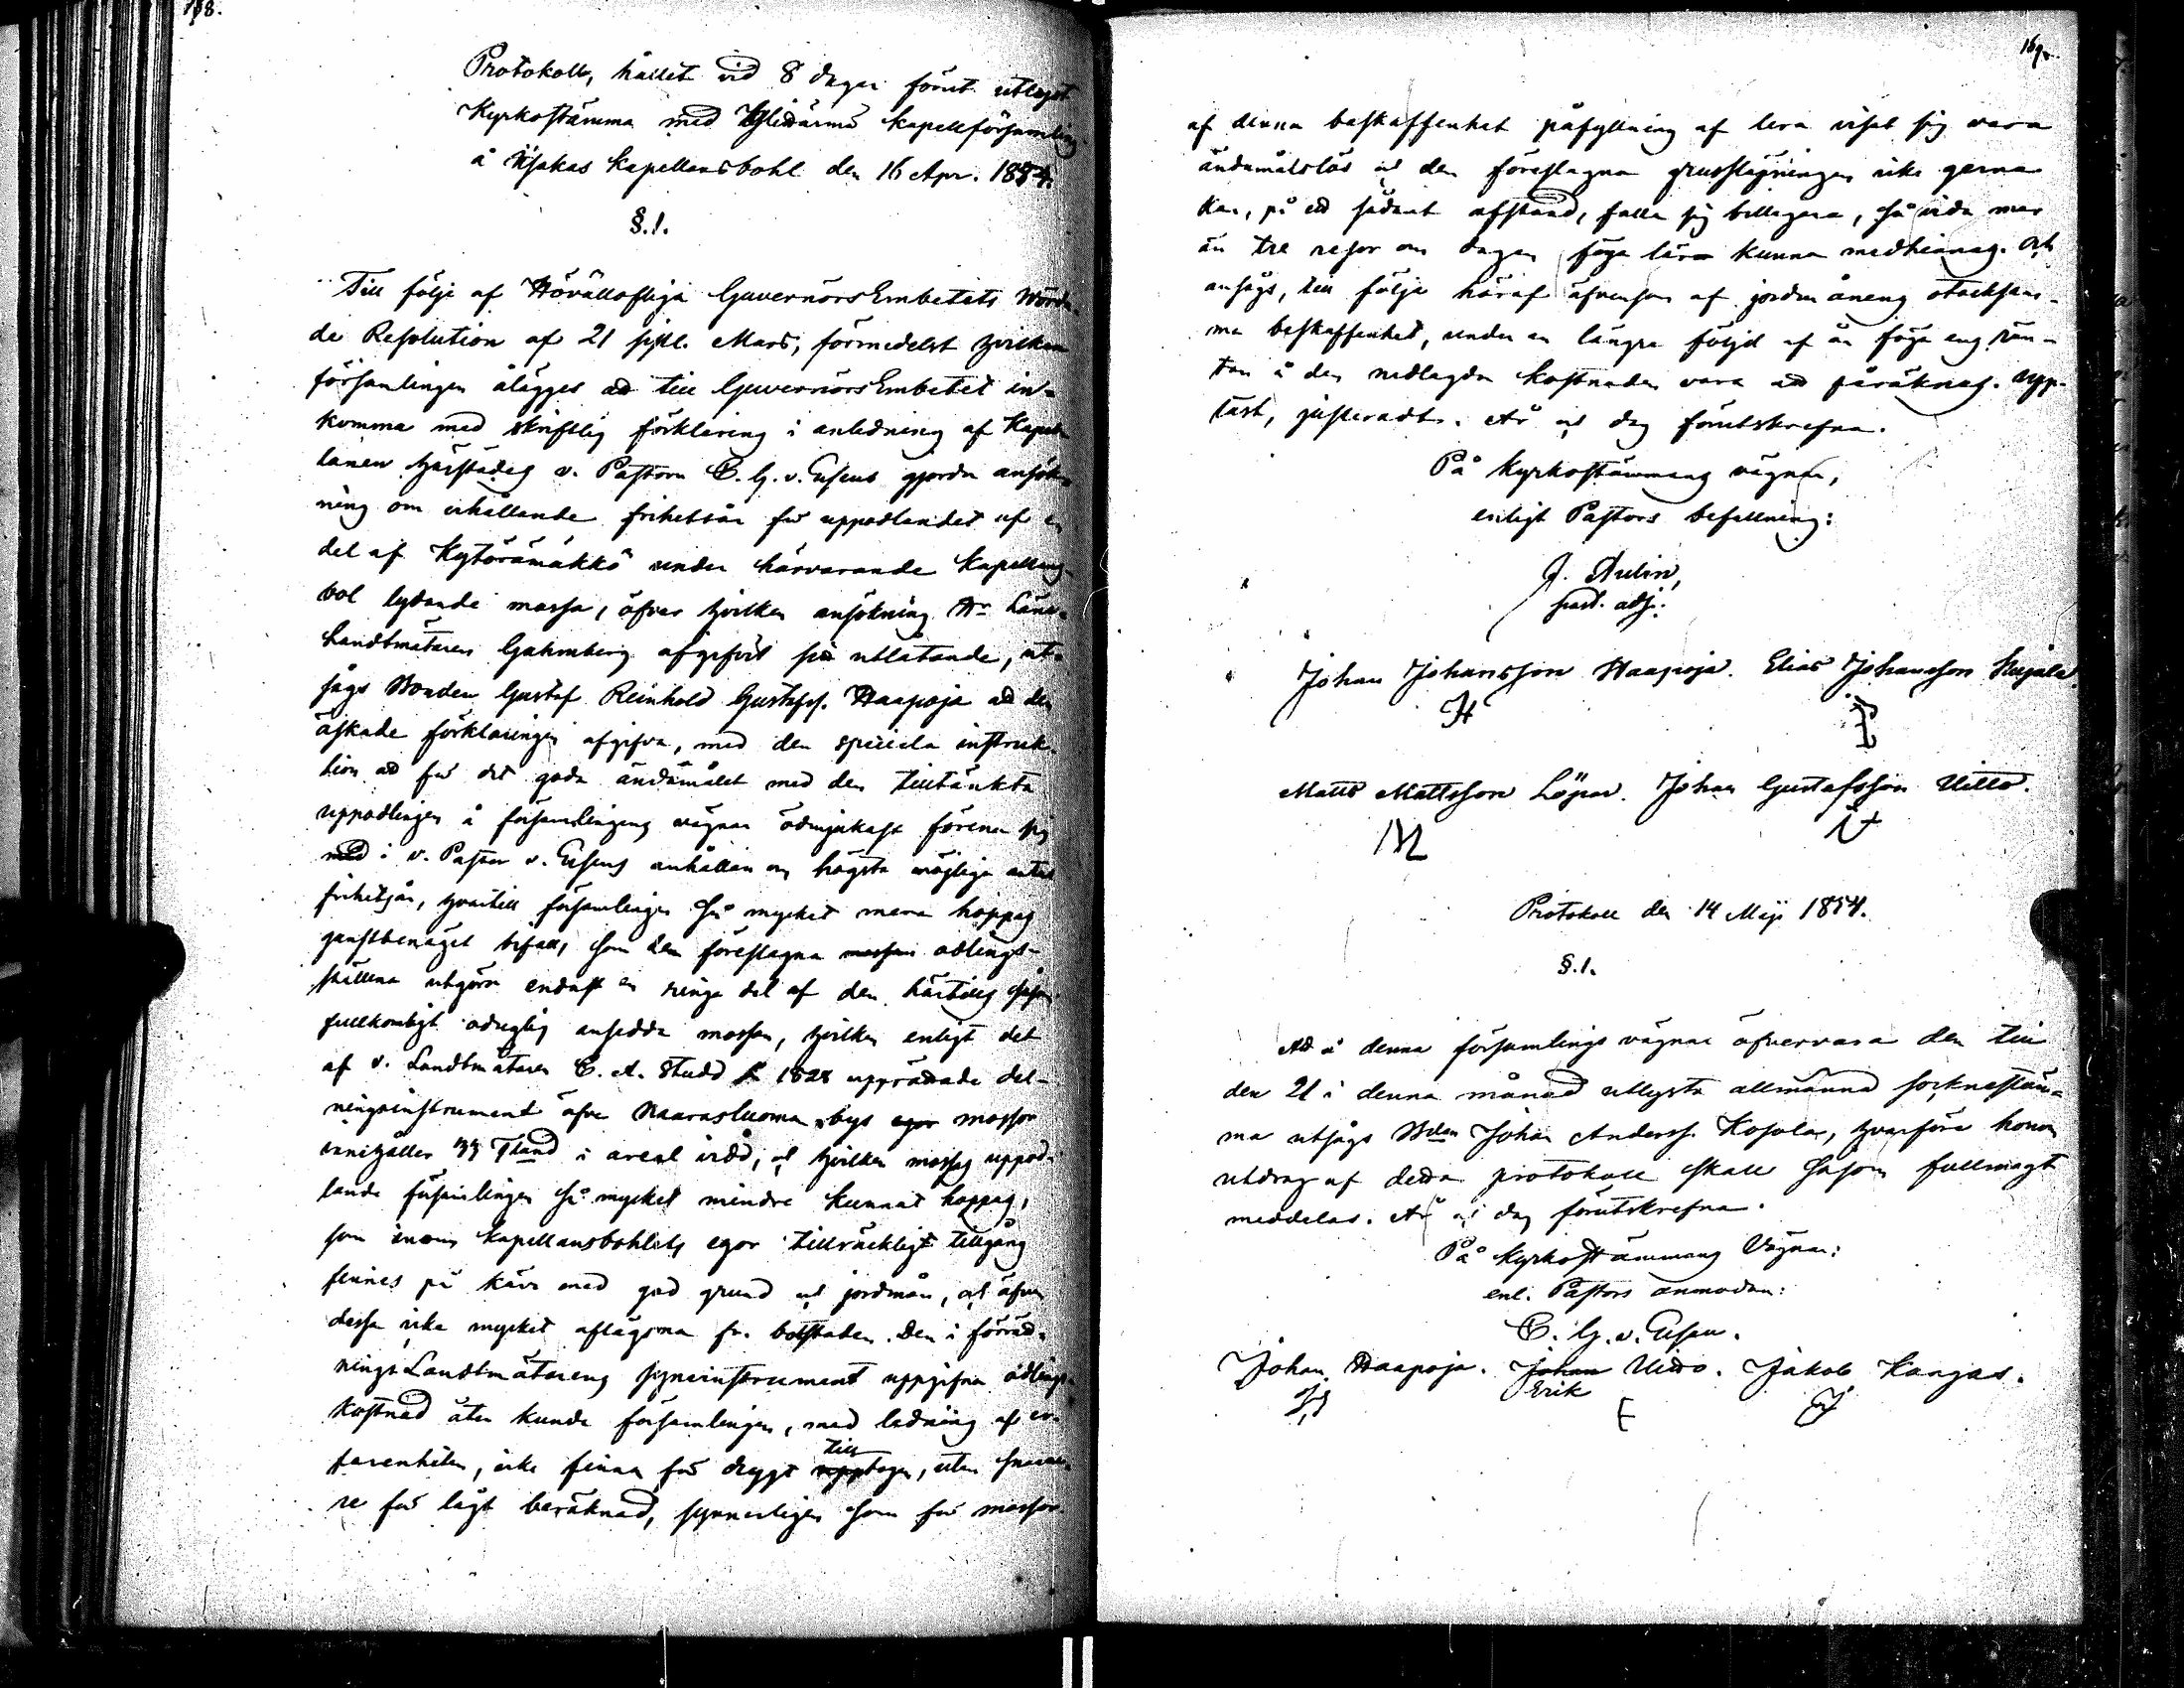 168.
Protokoll, hållet vid 8 dagar förut utlyst
Kyrkostämma med Ylihärmä Kapellförsamling
å Ujakas Kapellansbohl den 16 Apr. 1854.
§.1.
Till följe af Högvällofliga GuvernörsEmbetets Wörda-
de Resolution af 21 sistl. Mars, förmedelst hvilken
församlingen ålägges att till GuvernörsEmbetet in-
komma med skriftlig förklaring i anledning af Kapel-
lanen härstädes v. Pastorn C. G. v. Essens gjorda ansök-
ning om erhållande frihetsår för uppodlandet af en
del af Kytörämäkkö under härvarande Kapellans-
bol lydande mossa, öfver hvilken ansökning Hr Läne-
Landtmätaren Gahmberg afgifvit sitt utlåtande, ut-
sågs Bonden Gustaf Reinhold Gustafss. Haapoja att den
äskade förklaringen afgifva, med den speciela instruk-
tion att för det goda ändamålet med den tilltänkta
uppodlingen å församlingens vägnar ödmjukast förena sig
med i v. Pastor v. Essens anhållan om högsta möjliga antal
frihetsår, hvartill församlingen så mycket mera hoppas
gunstbenäget bifall, som den föreslagna mossen odlings-
ställena utgöra endast en ringa del af den härtills såsom
fullkomligt oduglig ansedda mossen, hvilken enligt det
af v. Landtmätaren C. A. Studd år 1828 upprättade del-
ningsinstrument öfver Naarasluoma bys egor mossor
innehåller Tland i areal vidd, och hvilken mossas uppod-
lande församlingen så mycket mindre kunnat hoppas,
som inom Kapellansbohlets egor tillräckligt tillgång
finnes på kärr med god grund och jordmån, och äfven
dessa icke mycket aflägsna fr. bolstaden. Den i förräd-
nings Landtmätarens syneinstrument uppgifna odlings-
kostnad åter kunde församlingen, med ledning af er-
farenheten, icke finna för drygt upptagen, utan snara-
till
re för lågt beräknad, synnerligen som för mossor
169.
af denna beskaffenhet påfyllning af lera visat sig vara
ändamålslös och den föreslagna grusslagningen icke gerna
kan, på ett sådant afstånd, falla sig billigare, så vida mer
än tre resor om dagen föga lära kunna medhinnas. Och
ansågs, till följe häraf äfvensom af jordmånens otacksam-
ma beskaffenhet, under en längre följd af år föga eng rän-
tan å den nedlagda kostnaden vara att påräknas. Upp-
läst, justeradt. År och dag förutskrefna.
På Kyrkostämmans vägnar,
enligt Pastors befallning:
J. Aulin,
past. adj.
Johan Johansson Haapoja. Elias Johansson Kujala.
H
Matts Mattsson Löpar. Johan Gustafsson Uitto.
M
Protokoll den 14 Maji 1854.
§.1.
Att å denna församlings vägnar öfvervara den till
den 21 i denna månad utlysta allmänna socknestäm-
ma utsågs Bden Johan Anderss. Kosola, hvarföre honom
utdrag af detta protokoll skall såsom fullmagt
meddelas. År och dag förutskrefna.
På Kyrkostämmans Vägnar:
enl. Pastors anmodan:
C. G. v. Essen.
Johan Haapoja. Johan Uitto. Jakob Kangas.
Erik